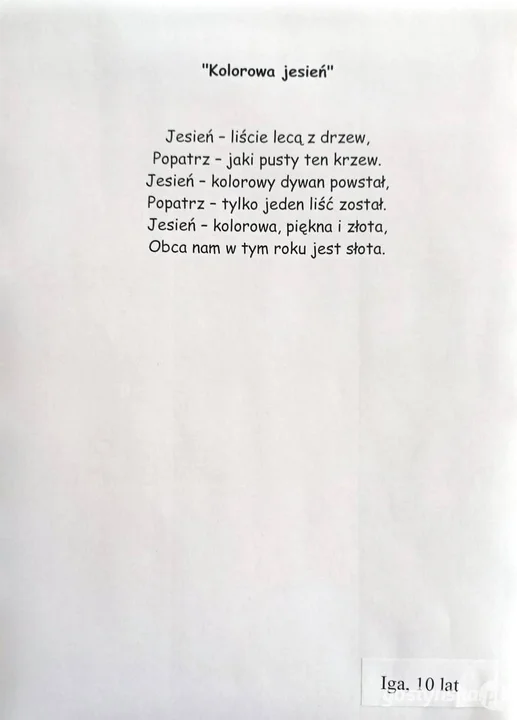 "Kolorowa jesień"
Jesień – liście lecą z drzew,
Popatrz – jaki pusty ten krzew.
Jesień – kolorowy dywan powstał,
Popatrz – tylko jeden liść został.
Jesień – kolorowa, piękna i złota,
Obca nam w tym roku jest słota.
Iga, 10 lat